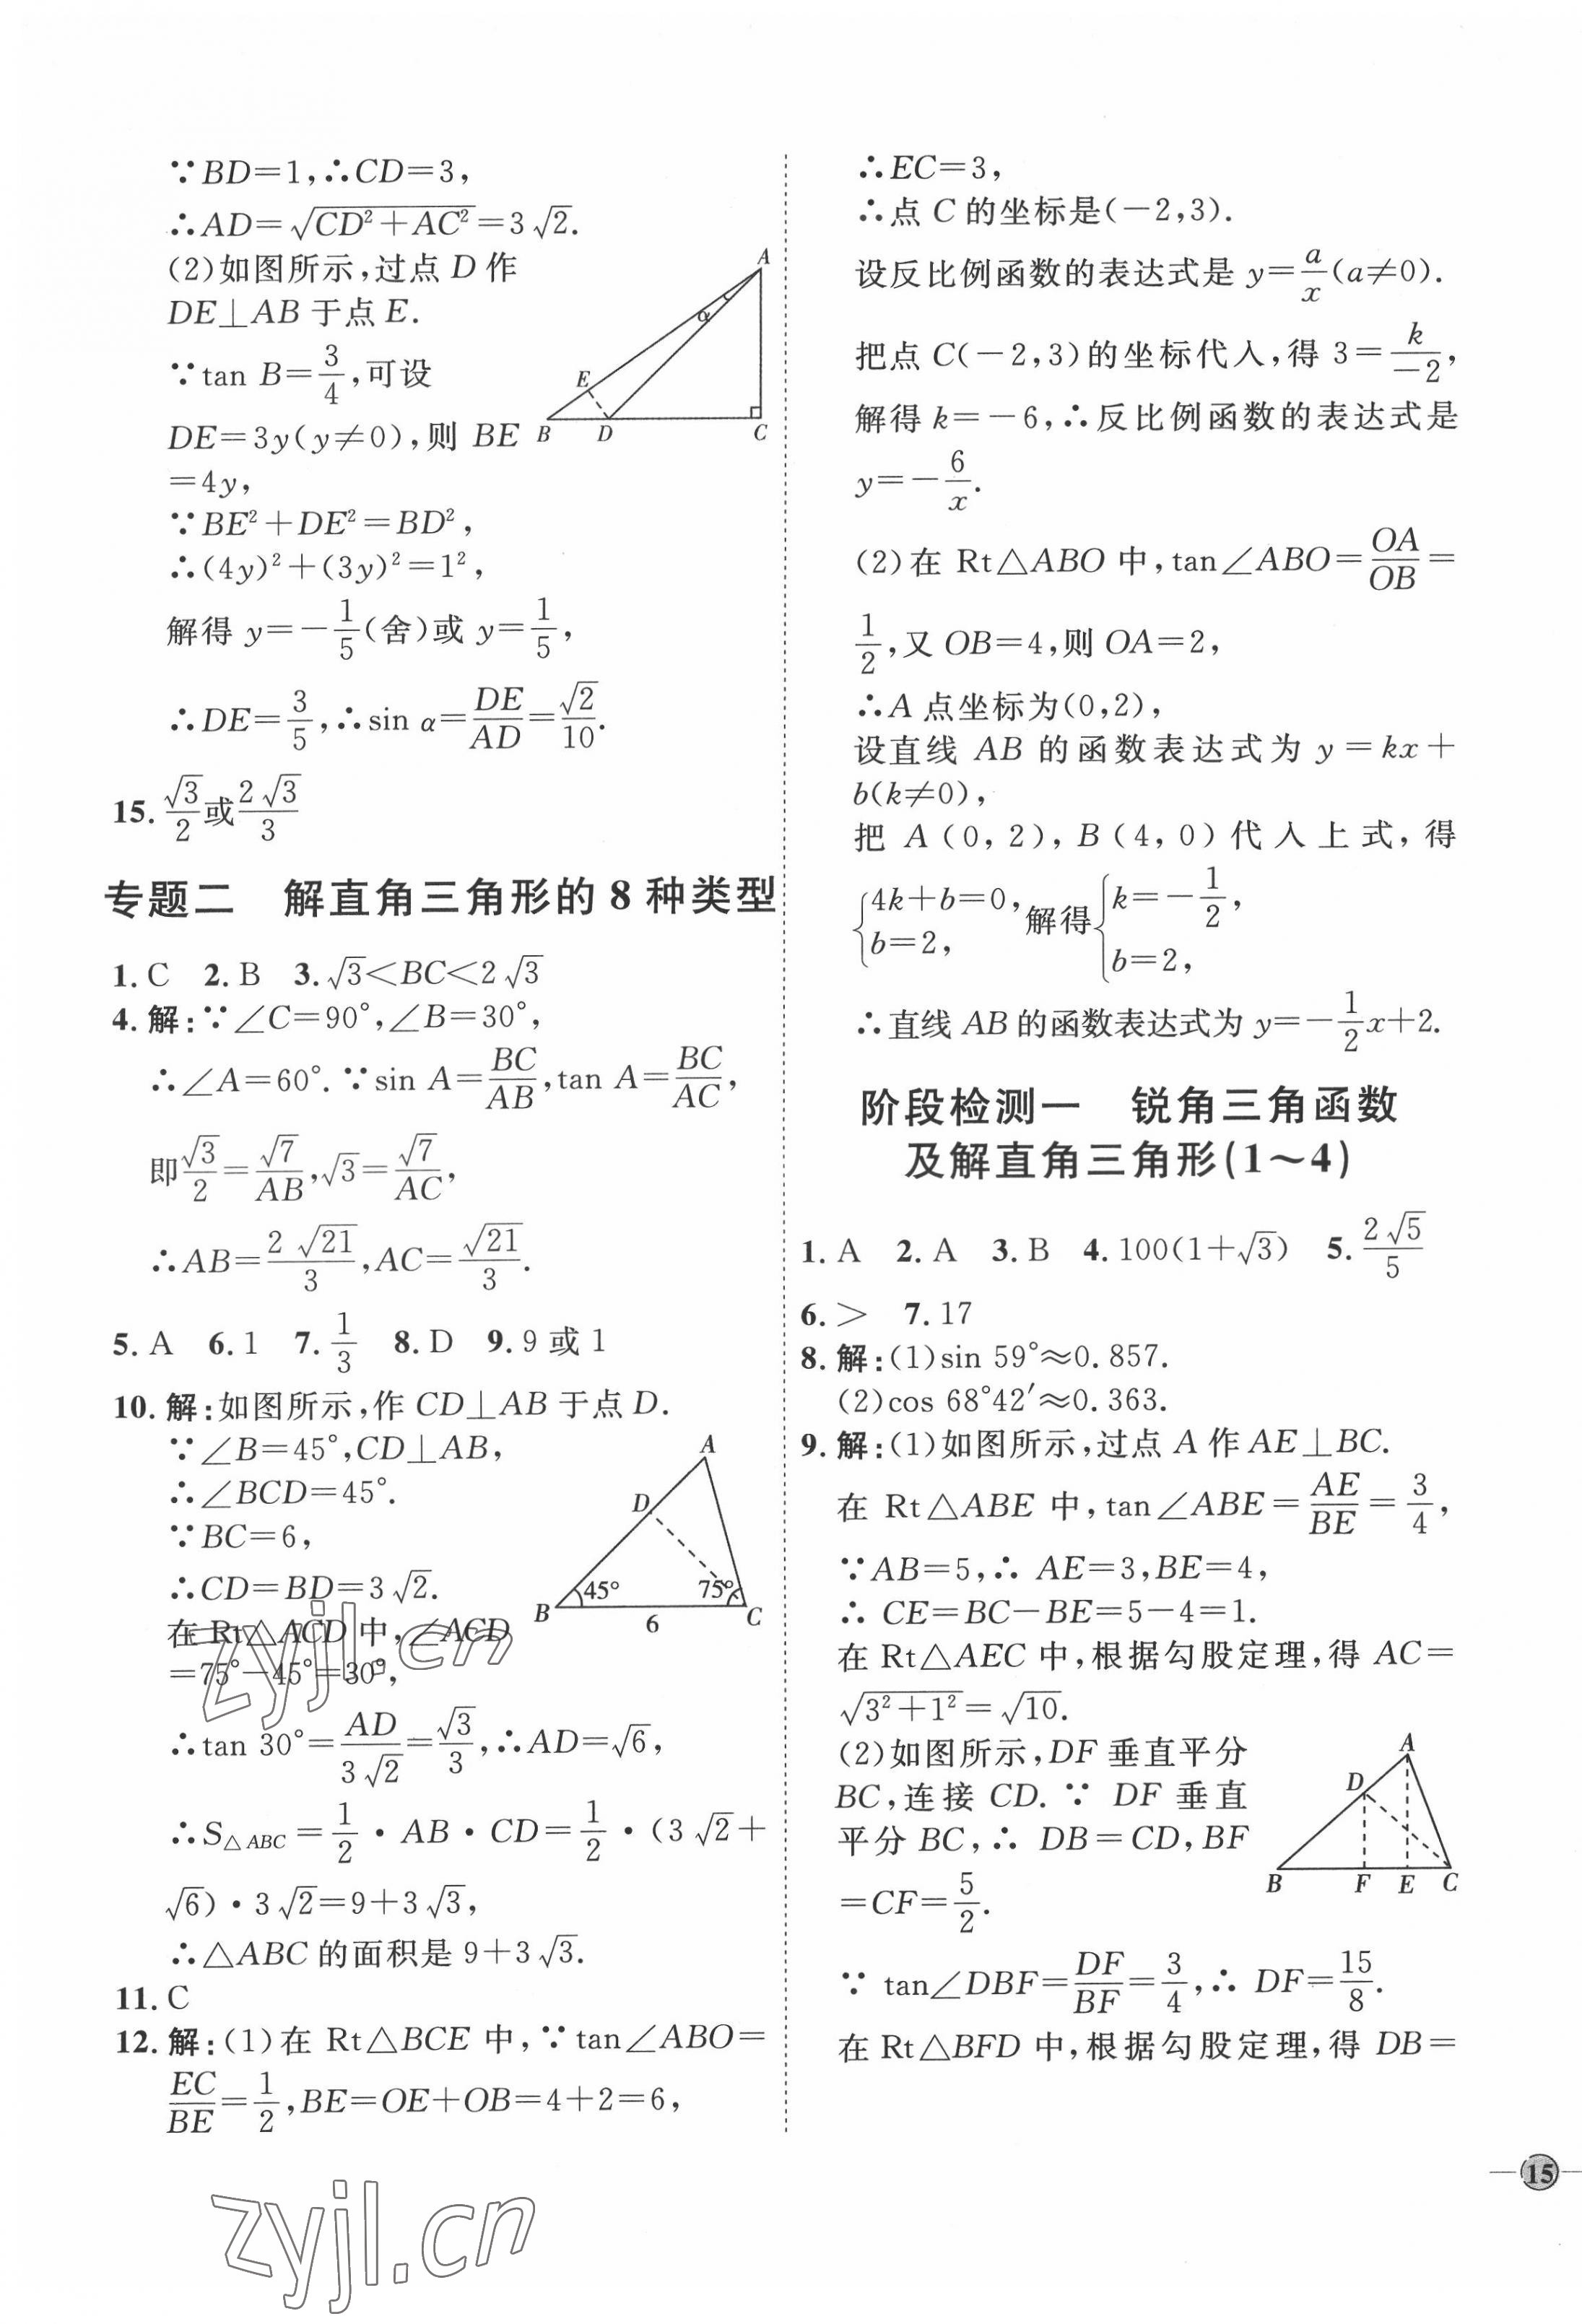 ∵BD=1,∴CD=3,
∴AD=√(CD²+AC²)=3√2.
(2)如图所示,过点 D 作
DE⊥AB 于点 E.
∵tan B=3/4,可设
DE=3y(y≠0),则 BE
=4y,
∵BE²+DE²=BD²,
∴(4y)²+(3y)²=1²,
解得 y=-1/5(舍)或 y=1/5,
∴DE=3/5,∴sin α=DE/AD=√2/10.
A
α
E
B D C
15. √3/2或2√3/3
专题二 解直角三角形的 8 种类型
1. C 2. B 3. √3<BC<2√3
4. 解:∵∠C=90°,∠B=30°,
∴∠A=60°.∵sin A=BC/AB,tan A=BC/AC,
即√3/2=√7/AB,√3=√7/AC,
∴AB=2√21/3,AC=√21/3.
5. A 6. 1 7. 1/3 8. D 9. 9 或 1
10. 解:如图所示,作 CD⊥AB 于点 D.
∵∠B=45°,CD⊥AB,
∴∠BCD=45°.
∵BC=6,
∴CD=BD=3√2.
在 Rt△ACD 中,∠ACD
=75°-45°=30°,
A
D
45° 75°
B 6 C
∴tan 30°=AD/3√2=√3/3,∴AD=√6,
∴S△ABC=1/2·AB·CD=1/2·(3√2+
√6)·3√2=9+3√3,
∴△ABC 的面积是 9+3√3.
11. C
12. 解:(1)在 Rt△BCE 中,∵tan∠ABO=
EC/BE=1/2,BE=OE+OB=4+2=6,
∴EC=3,
∴点 C 的坐标是(-2,3).
设反比例函数的表达式是 y=a/x(a≠0).
把点 C(-2,3)的坐标代入,得 3=k/-2,
解得 k=-6,∴反比例函数的表达式是
y=-6/x.
(2)在 Rt△ABO 中,tan∠ABO=OA/OB=
1/2,又 OB=4,则 OA=2,
∴A 点坐标为(0,2),
设直线 AB 的函数表达式为 y=kx+
b(k≠0),
把 A(0,2),B(4,0)代入上式,得
{4k+b=0, b=2, 解得{k=-1/2, b=2,
∴直线 AB 的函数表达式为 y=-1/2x+2.
阶段检测一 锐角三角函数
及解直角三角形(1~4)
1. A 2. A 3. B 4. 100(1+√3) 5. 2√5/5
6. > 7. 17
8. 解:(1)sin 59°≈0.857.
(2)cos 68°42′≈0.363.
9. 解:(1)如图所示,过点 A 作 AE⊥BC.
在 Rt△ABE 中,tan∠ABE=AE/BE=3/4,
∵AB=5,∴ AE=3,BE=4,
∴ CE=BC-BE=5-4=1.
在 Rt△AEC 中,根据勾股定理,得 AC=
√(3²+1²)=√10.
(2)如图所示,DF 垂直平分
BC,连接 CD. ∵ DF 垂直
平分 BC,∴ DB=CD,BF
=CF=5/2.
A
D
B F E C
∵ tan∠DBF=DF/BF=3/4,∴ DF=15/8.
在 Rt△BFD 中,根据勾股定理,得 DB=
15
zyjl.cn
zyjl.cn